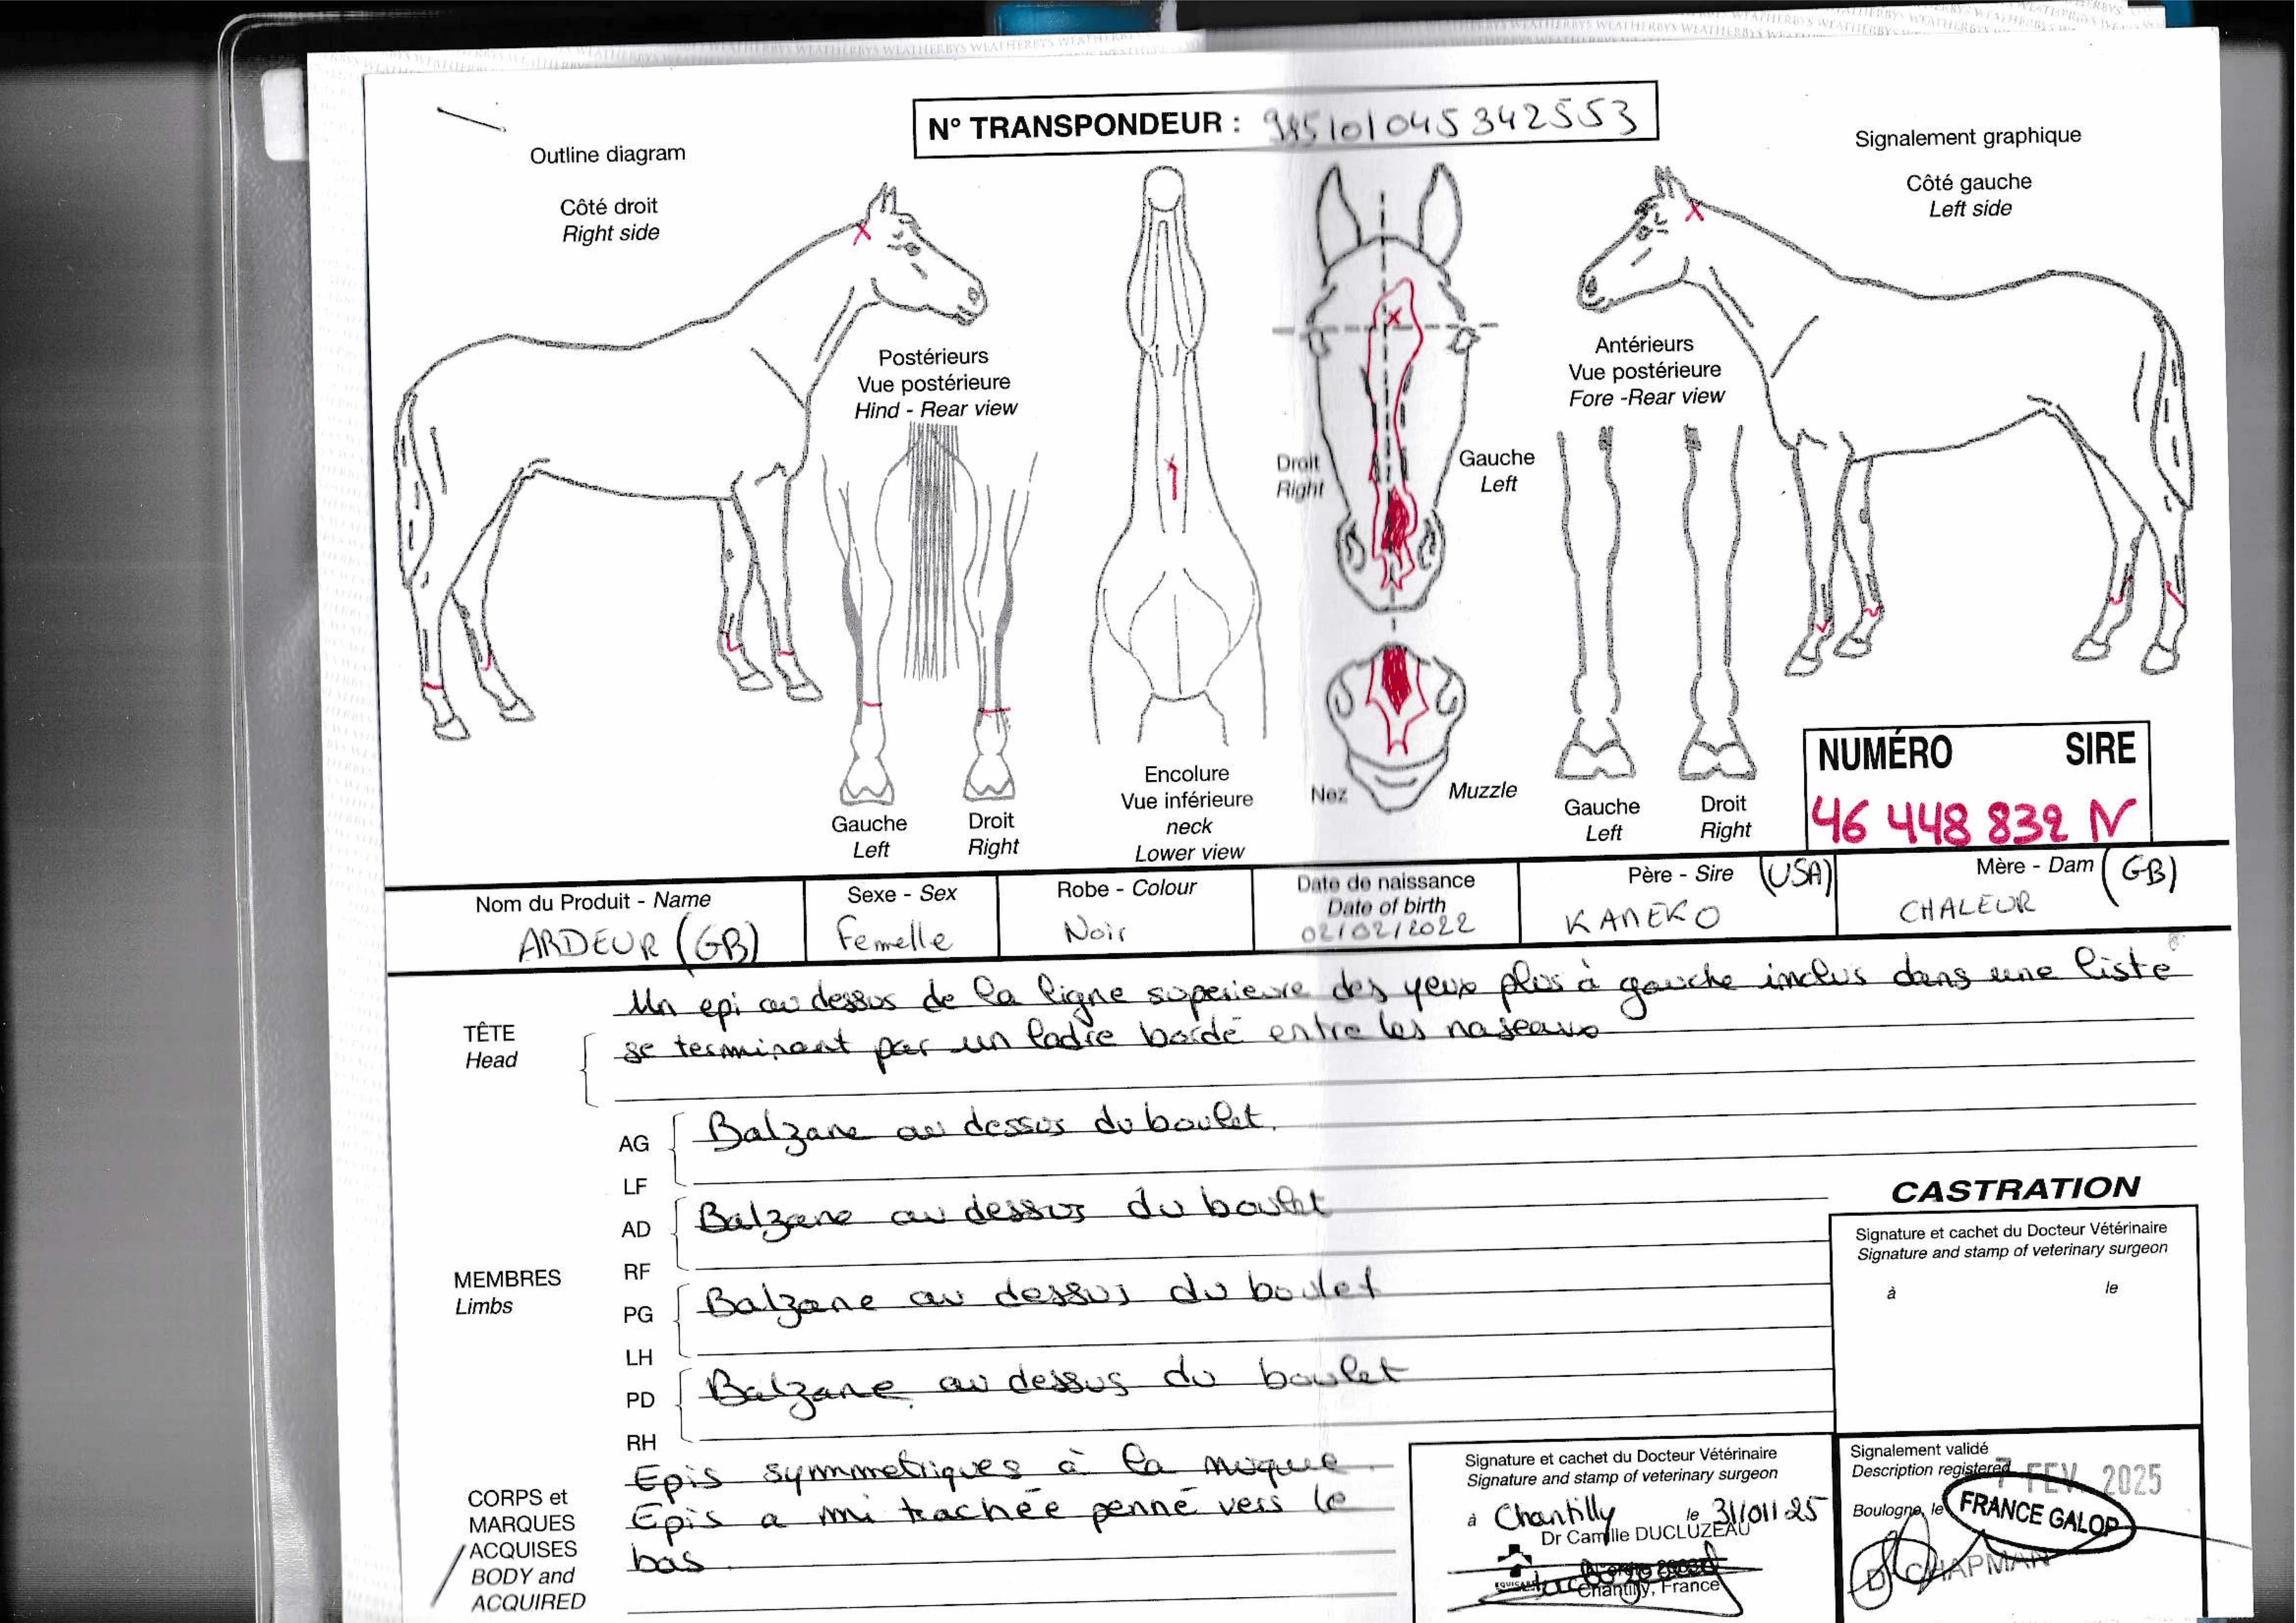 WEATHERBYS WEATHERBYS WEATHERBYS WEATHERBYS
N° TRANSPONDEUR : 985101045342553
Outline diagram
Côté droit
Right side
Signalement graphique
Côté gauche
Left side
Postérieurs
Vue postérieure
Hind - Rear view
Antérieurs
Vue postérieure
Fore -Rear view
Droit
Right
Gauche
Left
Gauche
Left
Droit
Right
Encolure
Vue inférieure
neck
Lower view
Nez
Muzzle
Gauche
Left
Droit
Right
NUMÉRO SIRE
46 448 832 N
Nom du Produit - Name
ARDEUR (GB)
Sexe - Sex
Femelle
Robe - Colour
Noir
Date de naissance
Date of birth
02/02/2022
Père - Sire (USA)
KANEKO
Mère - Dam (GB)
CHALEUR
TÊTE
Head
Un epi au dessus de la ligne superieure des yeux plus à gauche inclus dans une liste
se terminant par un ladre bordé entre les naseaux
MEMBRES
Limbs
AG
LF
Balzane au dessus du boulet.
AD
RF
Balzane au dessus du boulet
PG
LH
Balzane au dessus du boulet
PD
RH
Balzane au dessus du boulet
CORPS et
MARQUES
ACQUISES
BODY and
ACQUIRED
Epis symmetriques à la nuque.
Epis a mi trachée penné vers le
bas.
CASTRATION
Signature et cachet du Docteur Vétérinaire
Signature and stamp of veterinary surgeon
à le
Signature et cachet du Docteur Vétérinaire
Signature and stamp of veterinary surgeon
à Chantilly le 31/01/25
Dr Camille DUCLUZEAU
Chantilly, France
Signalement validé
Description registered
7 FEV. 2025
Boulogne, le
FRANCE GALOP
D. CHAPMAN